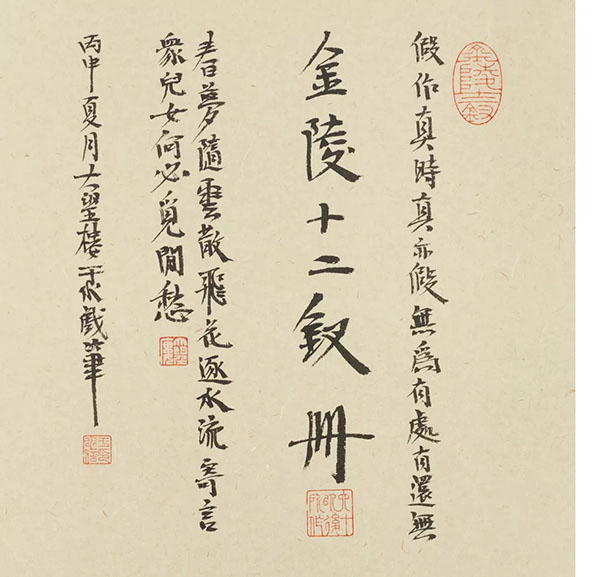 金陵十二釵
假作真時真亦假無為有處有還無
金陵十二釵冊
春夢隨雲散飛花逐水流寄言
衆兒女何必覓閒愁
丙申夏月大望楼平水戲筆